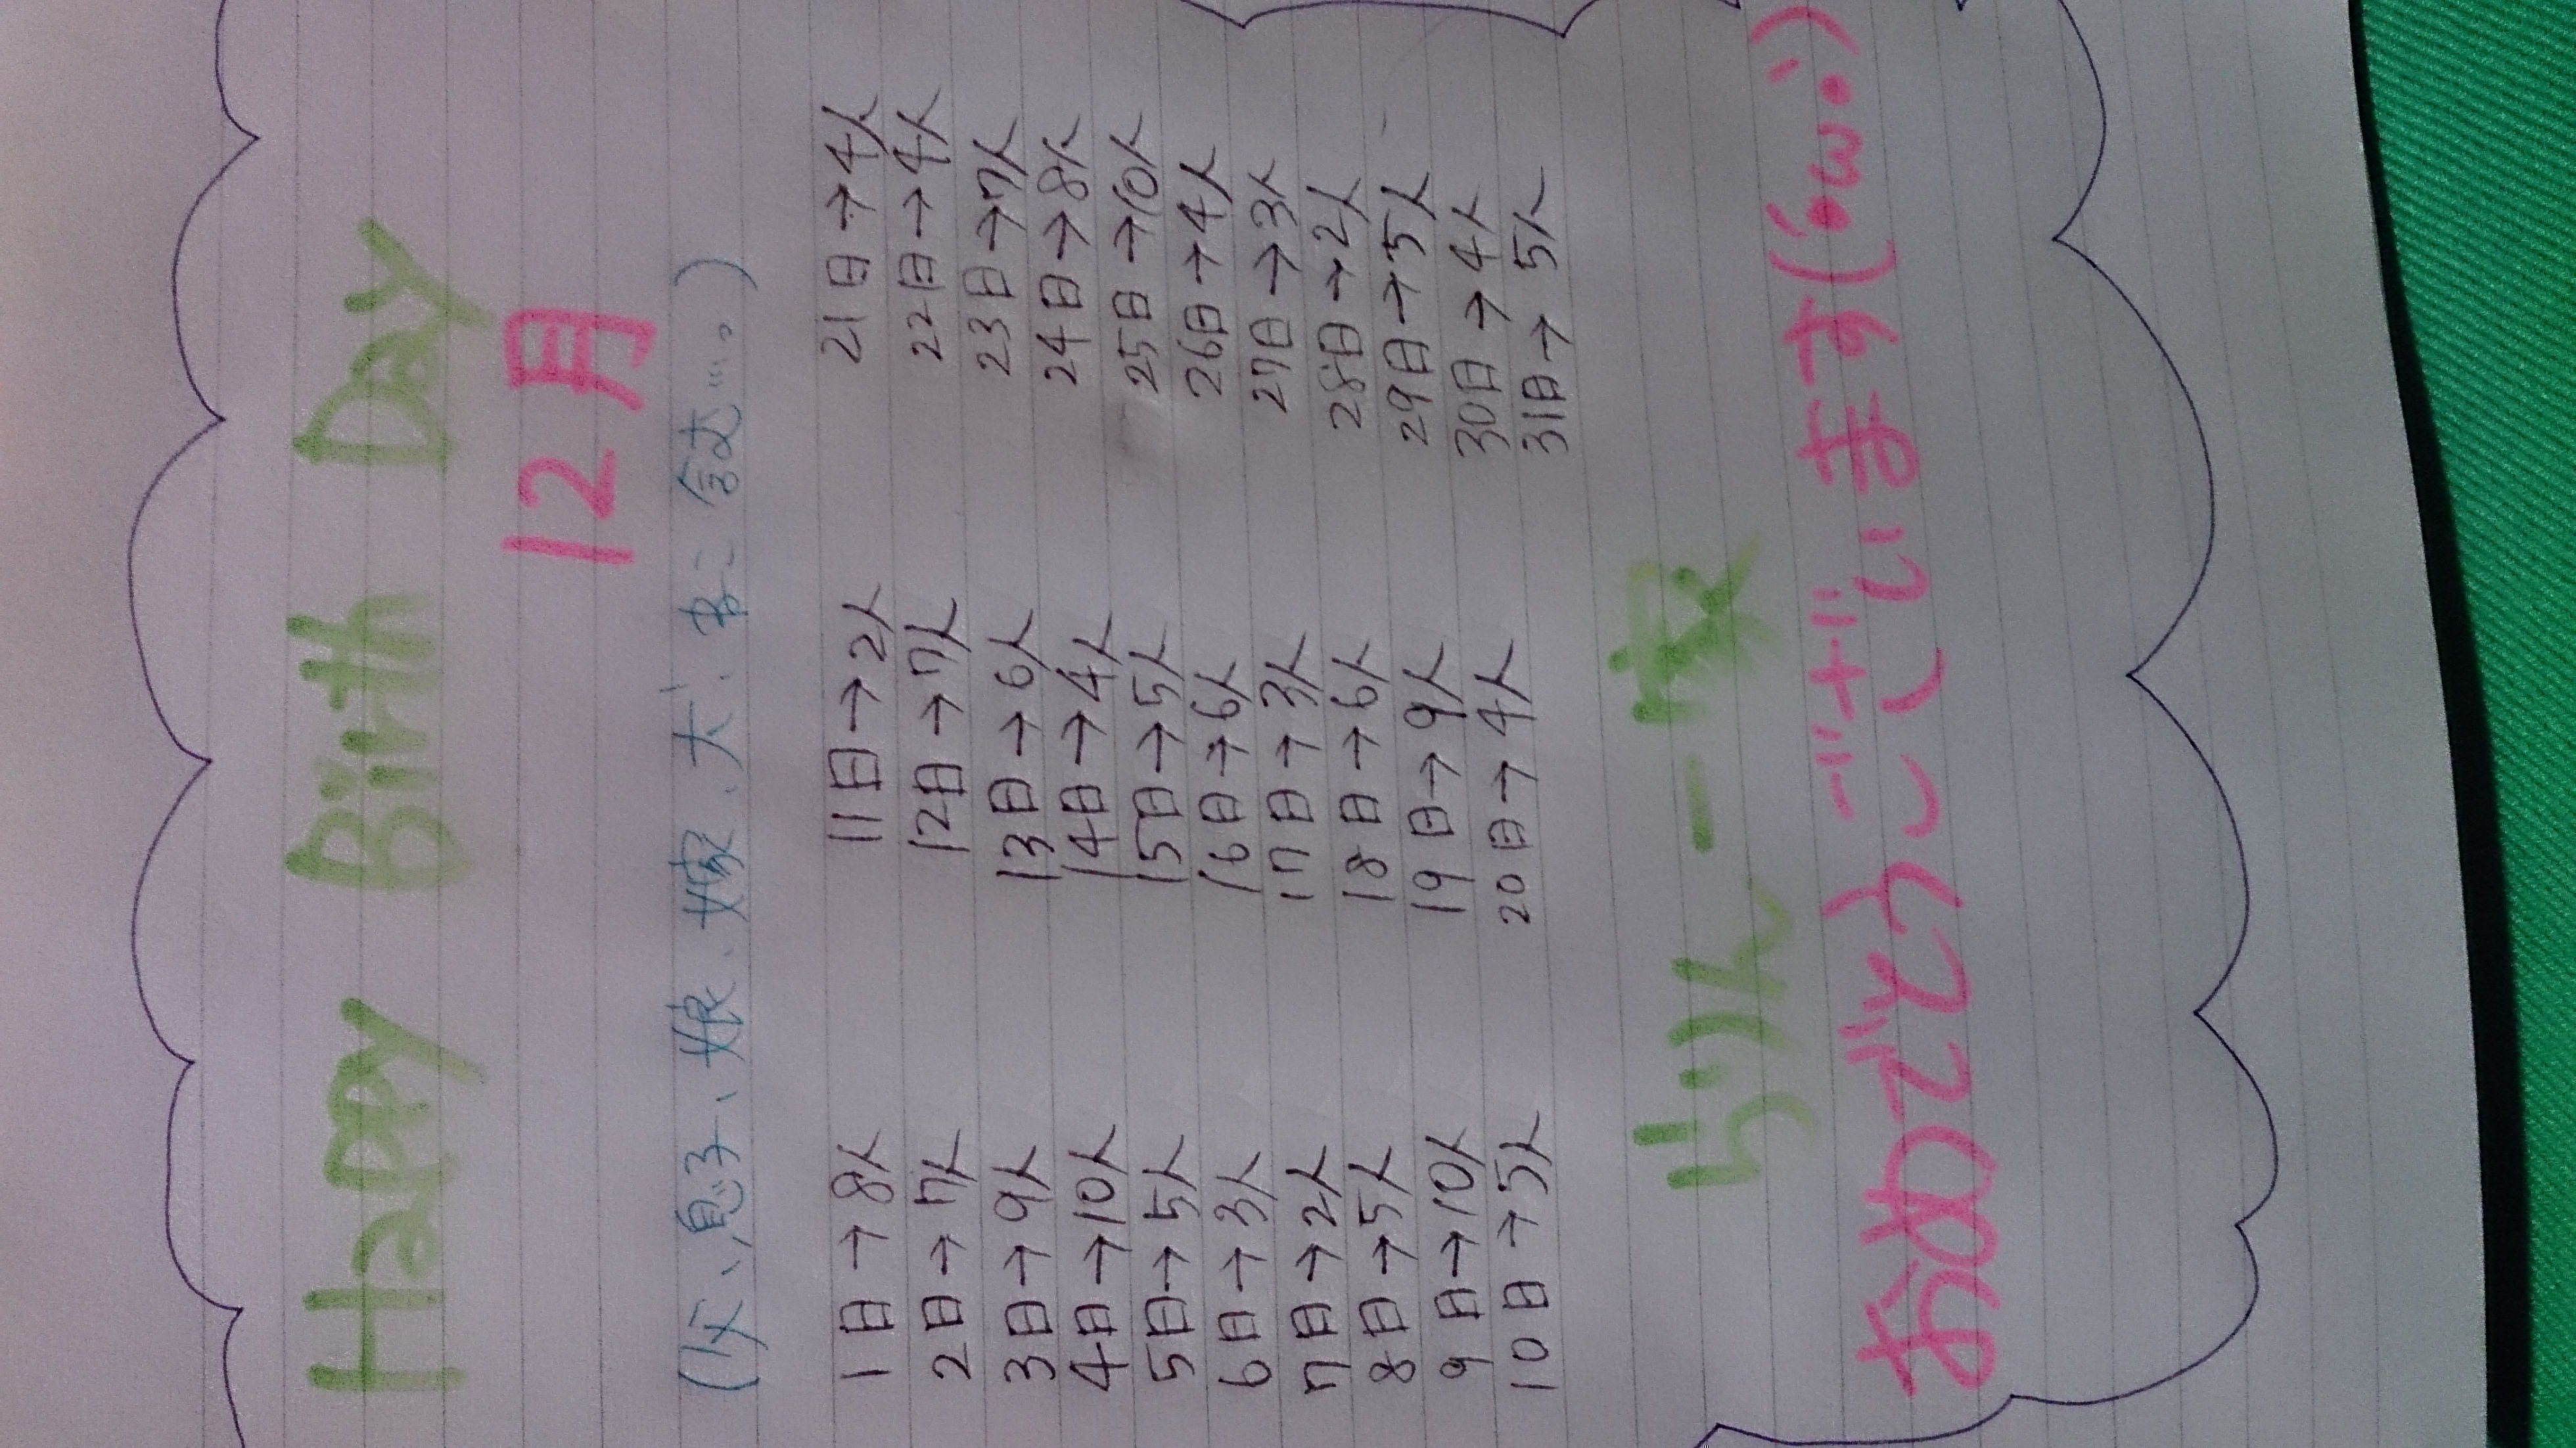 Happy Birth Day
12月
(父、息子、娘、嫁、犬、
1日→8人
2日→7人
3日→9人
4日→10人
5日→5人
6日→3人
7日→2人
8日→5人
9日→10人
10日→5人
11日→2人
12日→7人
13日→6人
14日→4人
15日→5人
16日→6人
17日→3人
18日→6人
19日→9人
20日→4人
21日→4人
22日→4人
23日→7人
24日→8人
25日→10人
26日→4人
27日→3人
28日→2人
29日→5人
30日→4人
31日→5人
おめでとうございます(´•ω•`)